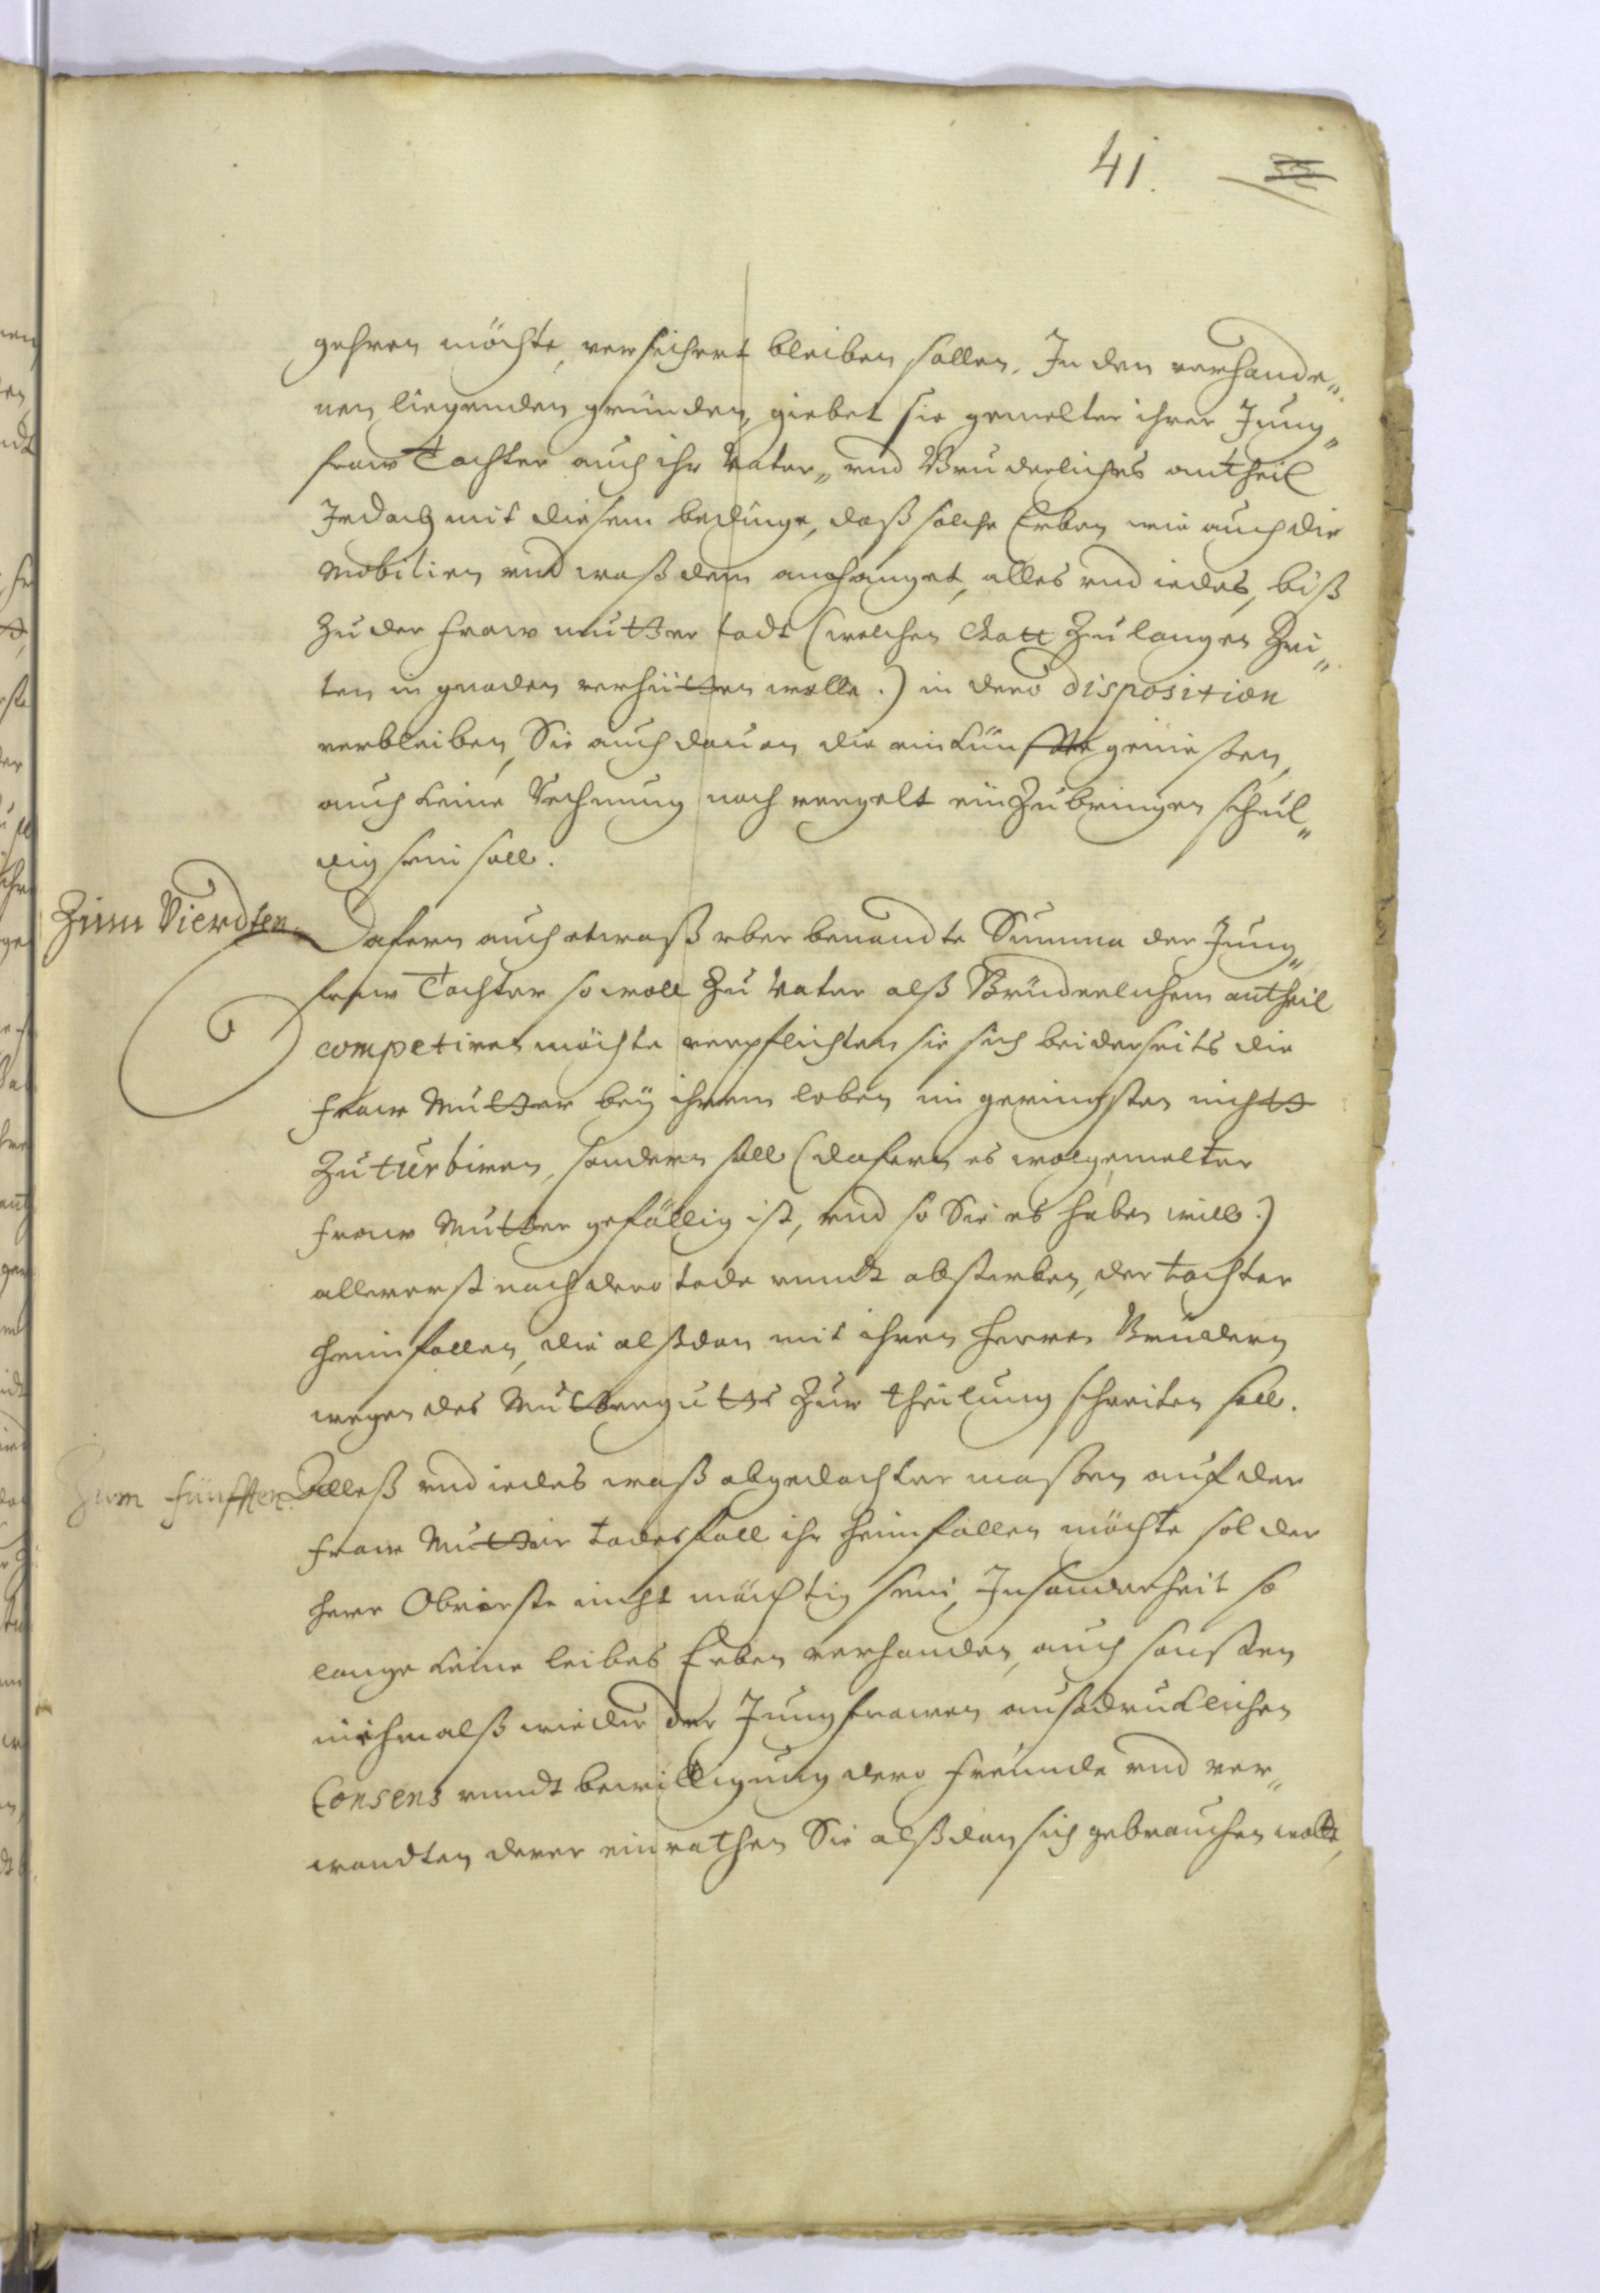 41.
gehren möchte, versichert bleiben sollen. In den verhande„
nen liegenden gründen, giebet sie gemelter ihrer Jung„
fraw Tochter auch ihr Vater„ vnd Brüderliches antheil
Jedoch mit diesem bedinge, daß solche Erben wie auch die
Mobilien vnd waß dem anhanget, alles vnd iedes, biß
Zu der Fraw mutter todt (welchen Gott Zu langen Zei„
ten in gnaden verhütten wolle.) in dero disposition
verbleiben, Sie auch dauon die einkünffte genießen,
auch keine Rechnung noch entgelt einZubringen schul„
dig sein soll.
Zum Vierdten
Dafern auch etwaß vber benandte Summa der Jung„
fraw Tochter sowoll Zu Vater alß Brüderlichem antheil
competiren möchte verpflichten sie sich beiderseits die
Fraw Mutter beÿ ihrem leben im geringsten nichtt
Zu turbiren, sondern soll (dafern es wolgemelter
Fraw Mutter gefällig ist, vnd so Sie es haben will.)
allererst nach dero tode vnndt absterben, der tochter
heimfallen, die alßdan mit ihren Herren Brüdern
wegen des Mutterguttes Zur theilung schreiten soll.
Zum fünfften.
Alleß vnd iedes waß abgedachter maßen auf der
Fraw Mutter todesfall ihr heimfallen möchte sol der
Herr Obriste nicht mächtig sein, Insonderheit so
lange keine leibes Erben verhanden, auch sonsten
niehmalß wieder der Jungfrawen außdrücklichen
Consens vnndt bewilligung dero freunde vnd ver„
wandten derer einrathen Sie alßdan sich gebrauchen wolte,